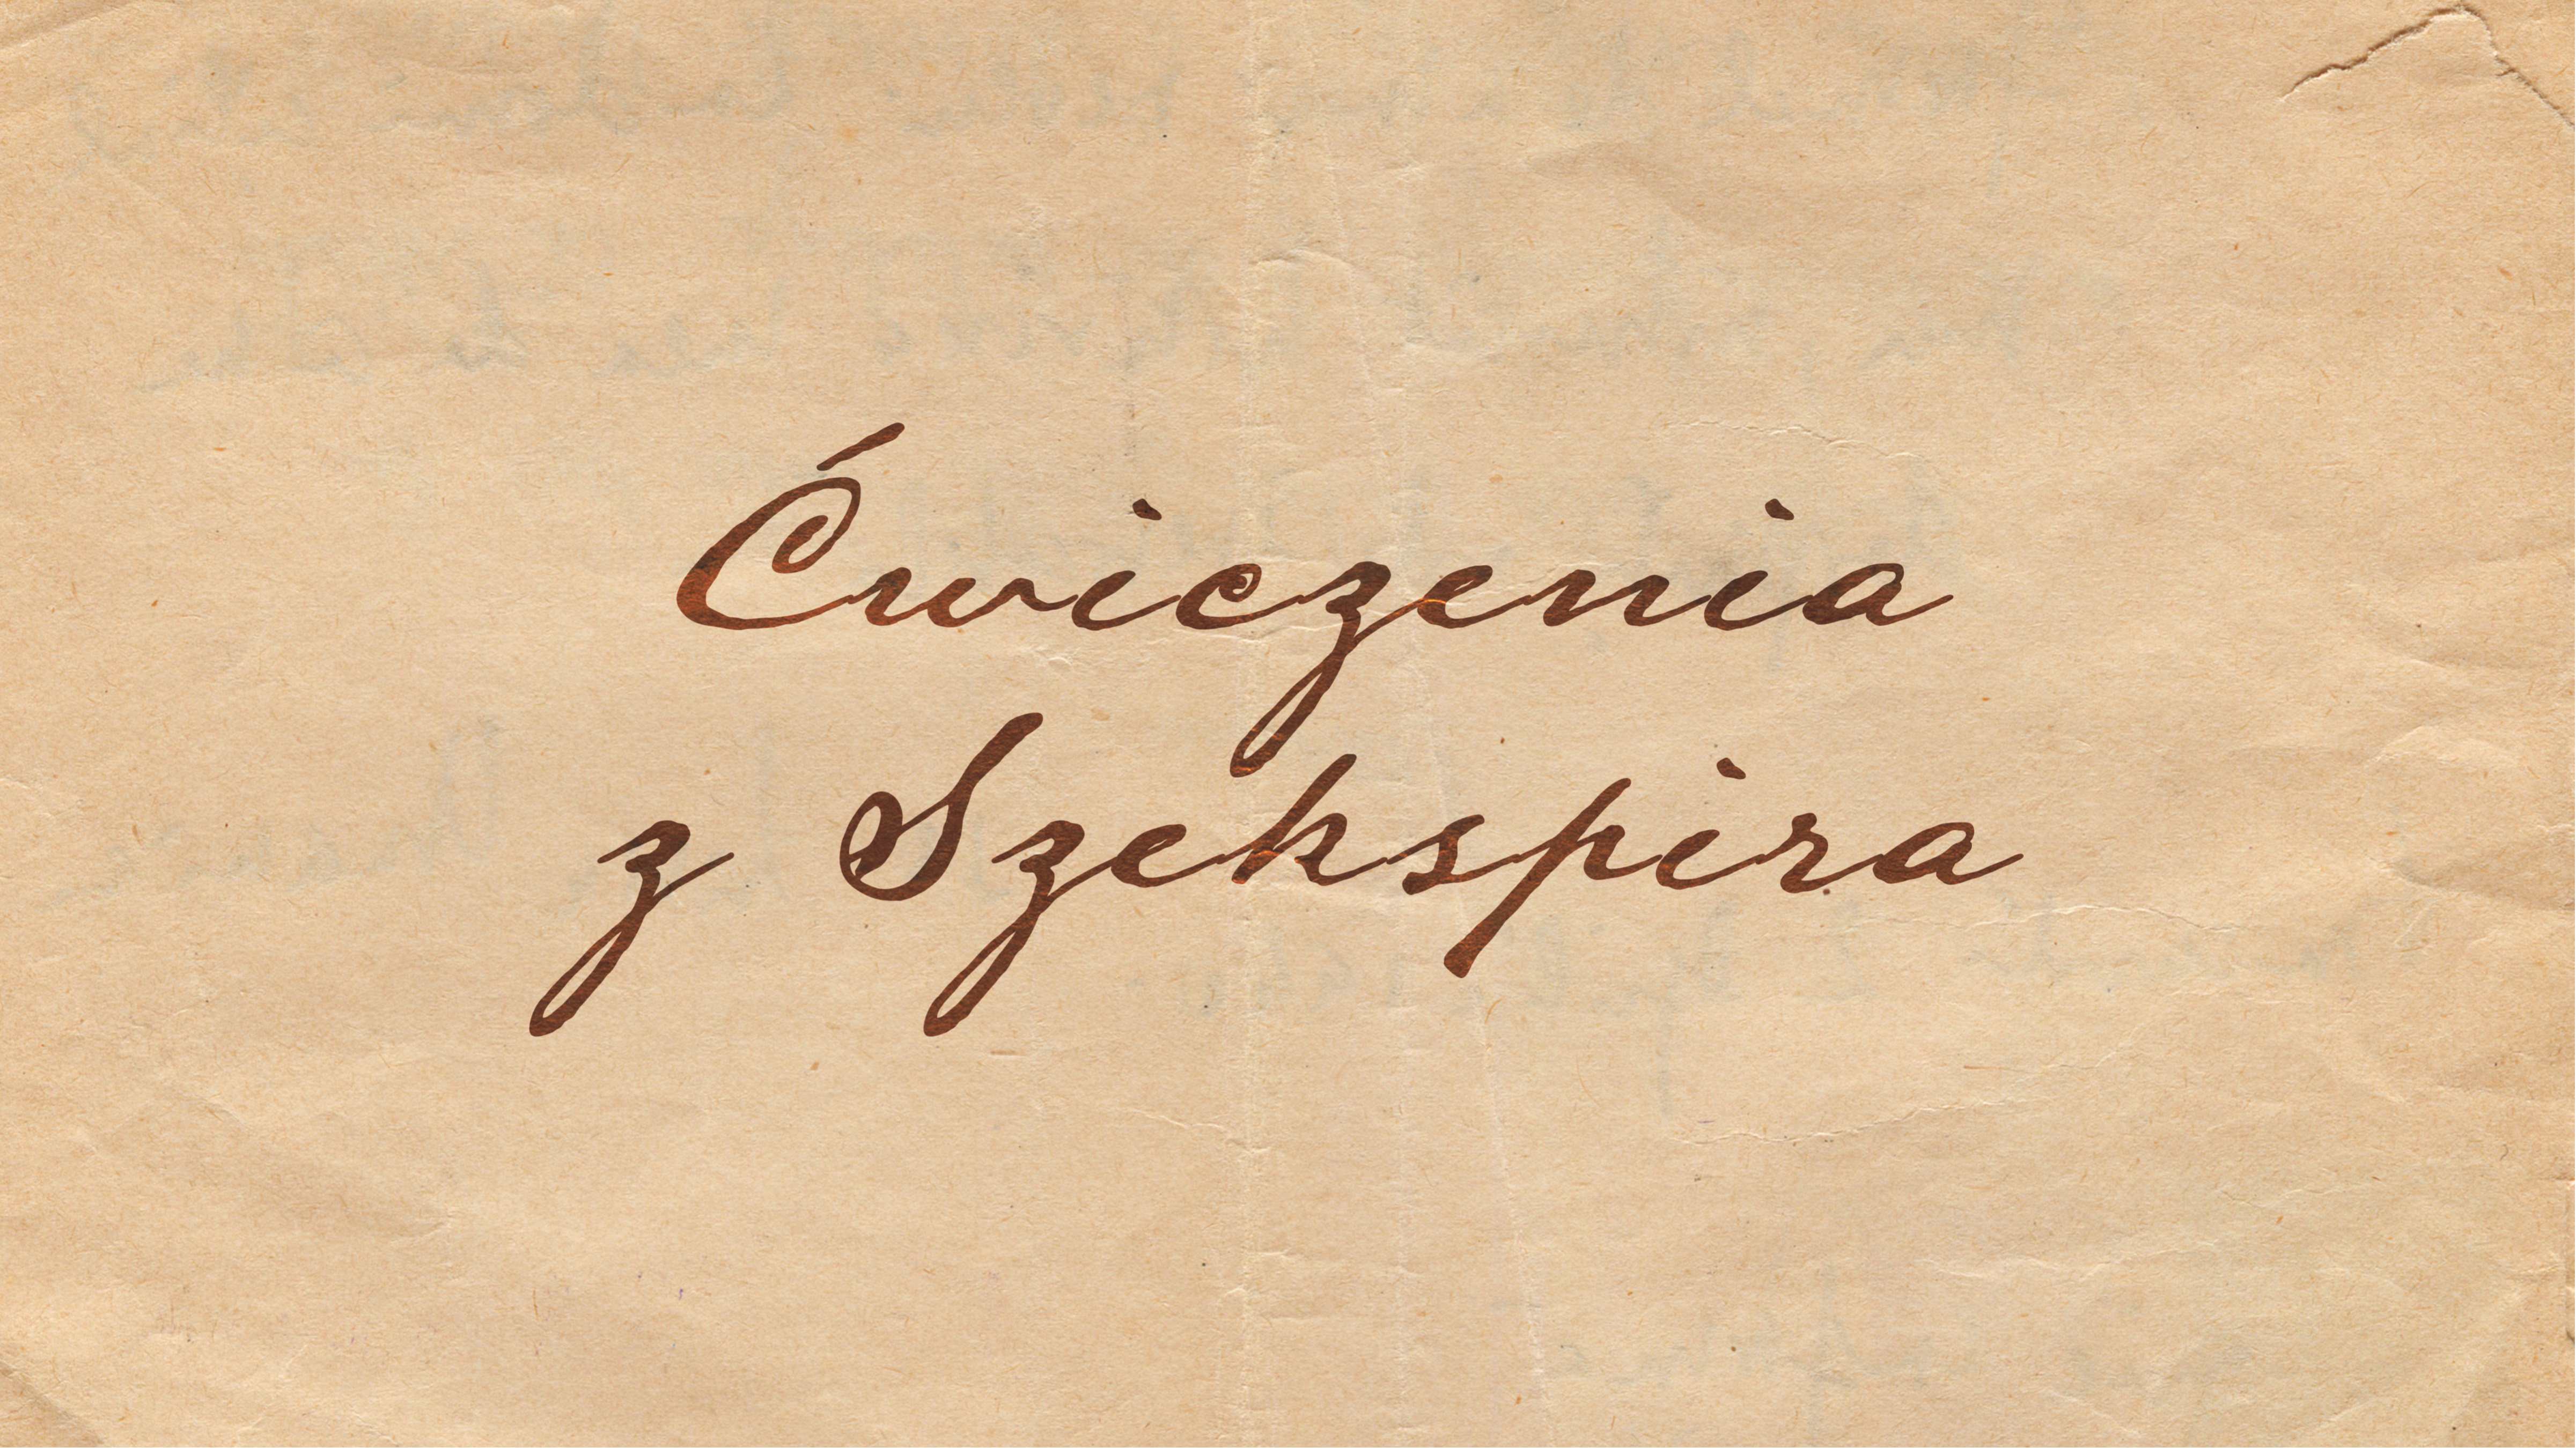 Ćwiczenia
z Szekspira